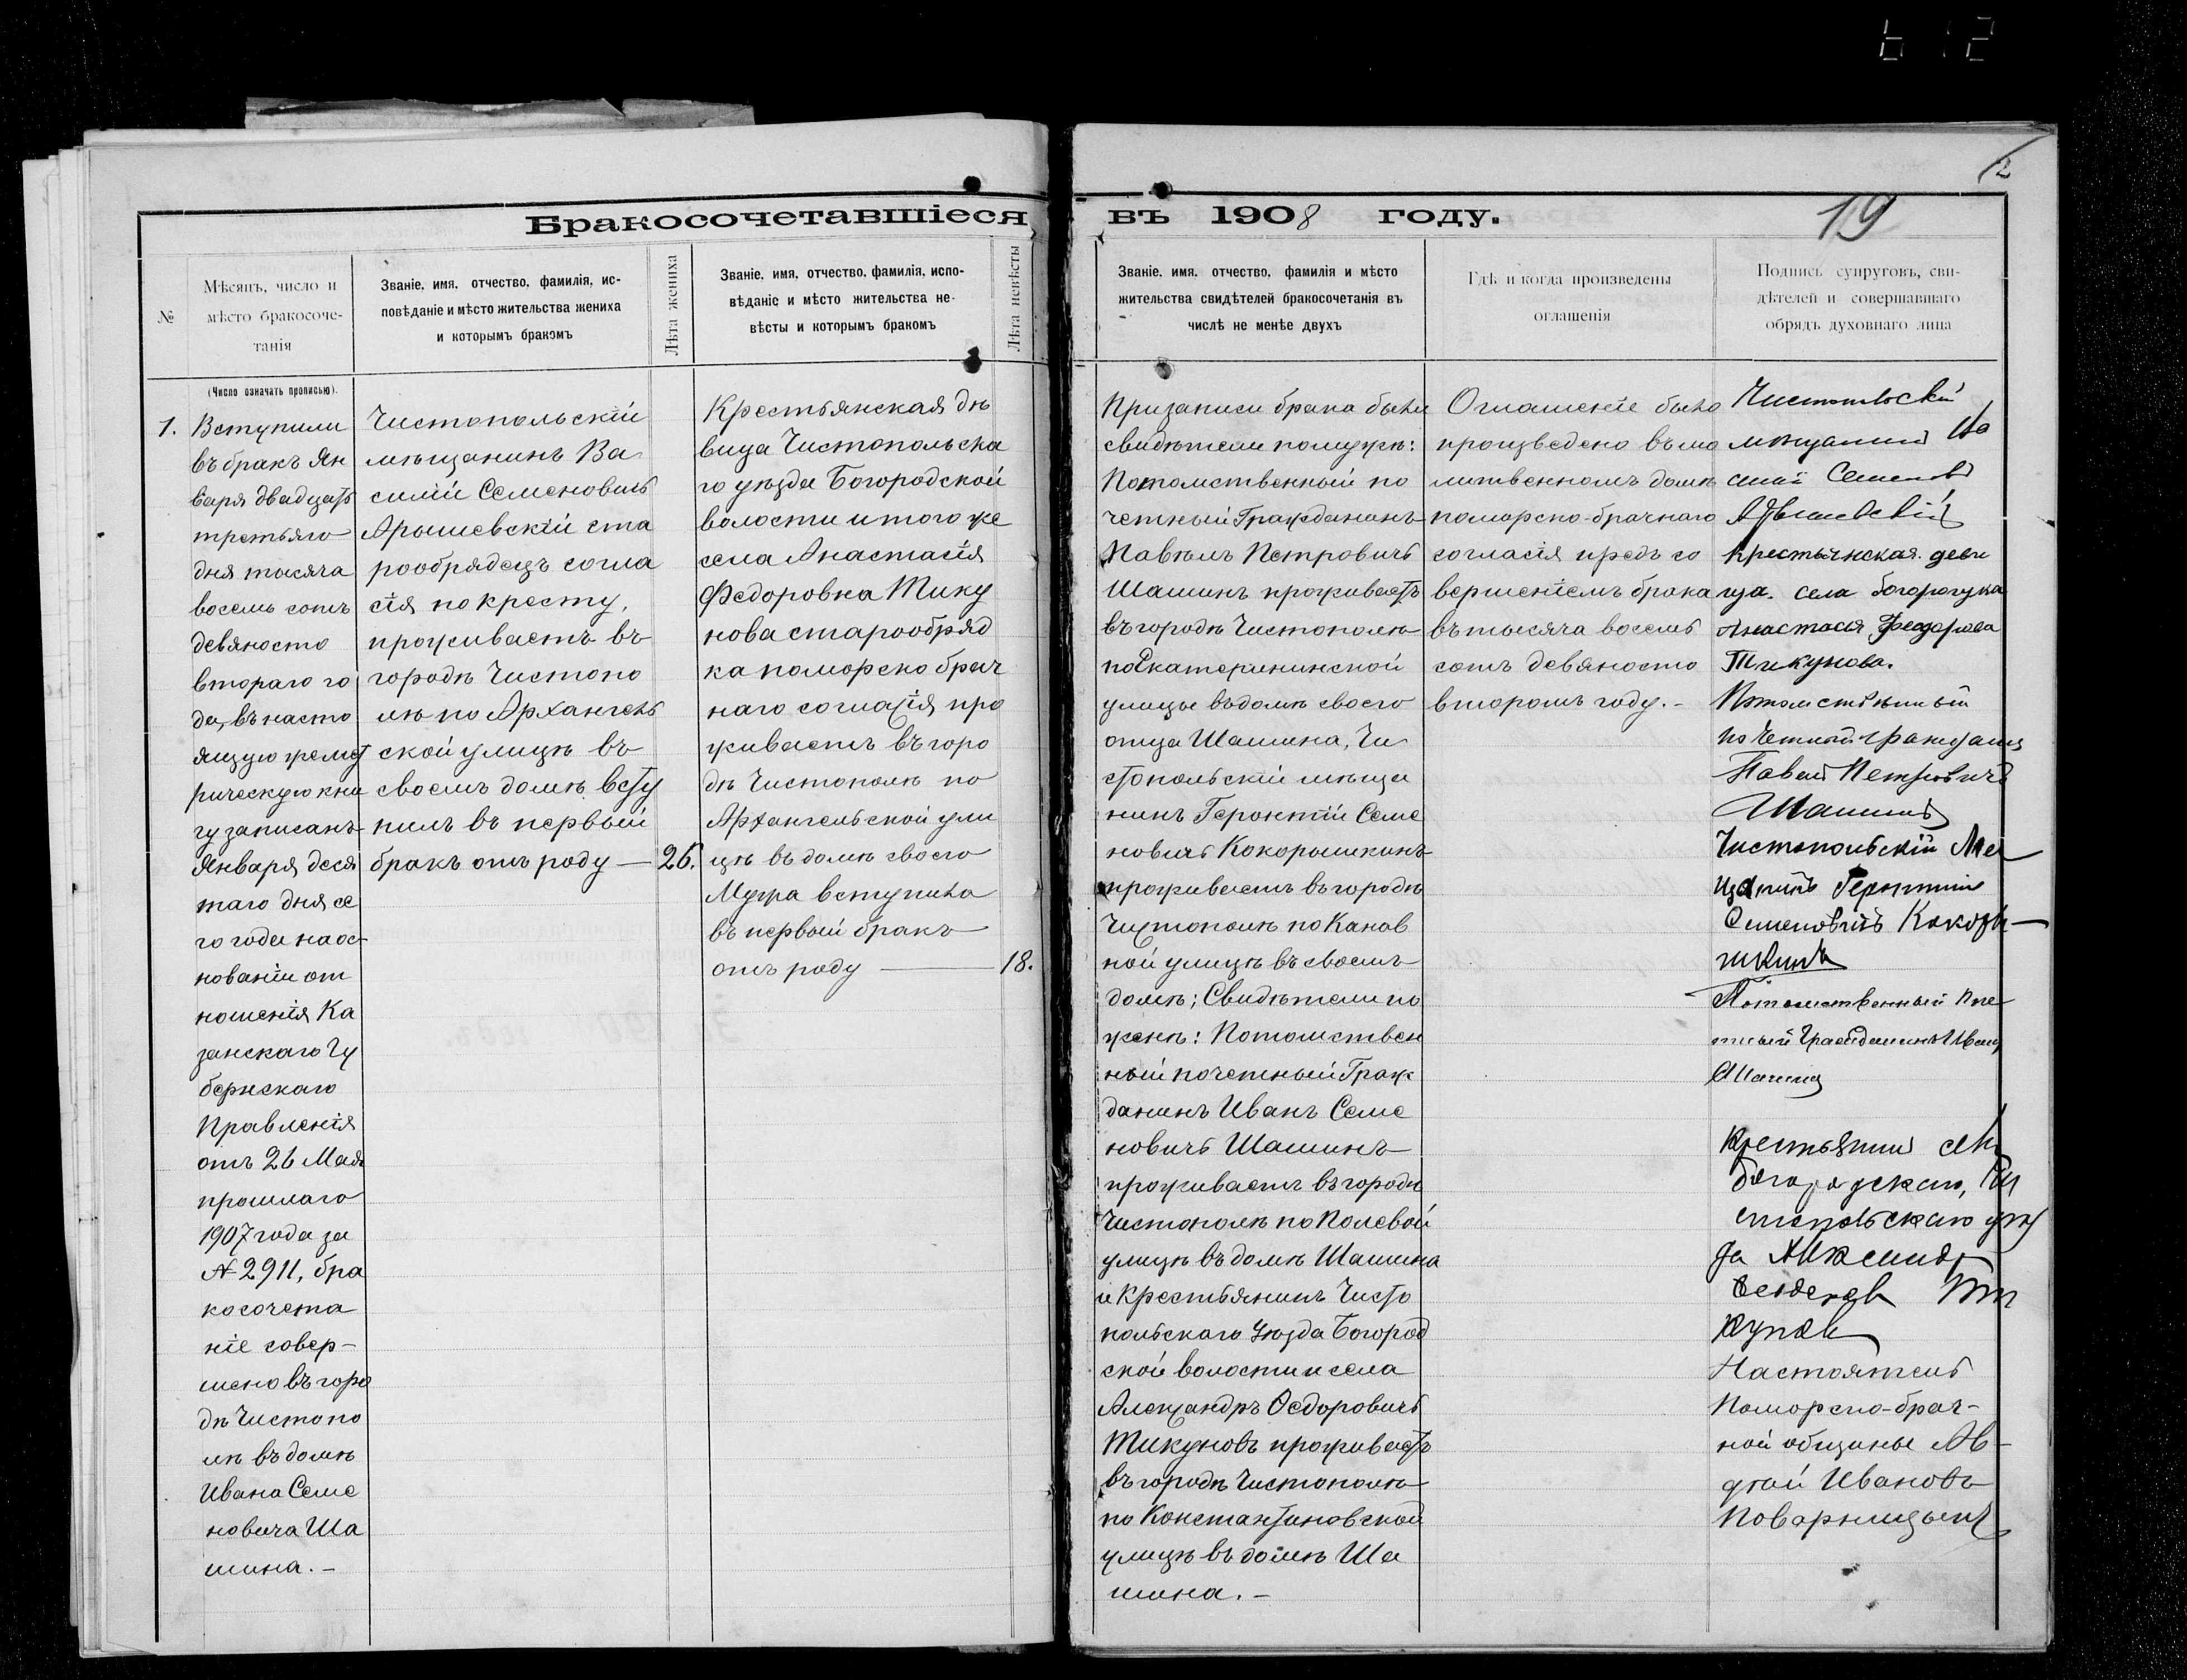 2
Бракосочетавшіеся въ 1908 году.
19
№
Мѣсяцъ, число и
мѣсто бракосоче-
танія
Званіе, имя, отчество, фамилія, ис-
повѣданіе и мѣсто жительства жениха
и которымъ бракомъ
Лѣта жениха
Званіе, имя, отчество, фамилія, испо-
вѣданіе и мѣсто жительства не-
вѣсты и которымъ бракомъ
Лѣта невѣсты
Званіе, имя, отчество, фамилія и мѣсто
жительства свидѣтелей бракосочетанія въ
числѣ не менѣе двухъ
Гдѣ и когда произведены
оглашенія
Подпись супруговъ, сви-
дѣтелей и совершавшаго
обрядъ духовнаго лица
(Число означать прописью).
1.
Вступили
въ бракъ Ян
варя двадцать
третьяго
дня тысяча
восемь сотъ
девяносто
втораго го
да, въ насто
ящую же мет
рическую кни
гу записанъ
Января деся
таго дня се
го года на ос
нованіи от
ношенія Ка
занскаго Гу
бернскаго
Правленія
отъ 26 Мая
прошлаго
1907 года за
№ 2911, бра
косочета
ніе совер-
шено въ горо
дѣ Чистопо
лѣ въ домѣ
Ивана Семе
новича Ша
шина. –
Чистопольскій
мѣщанинъ Ва
силій Семеновичъ
Арышевскій ста
рообрядецъ согла
сія по кресту,
проживаетъ въ
городѣ Чистопо
лѣ по Архангель
ской улицѣ въ
своемъ домѣ всту
пилъ въ первый
бракъ отъ роду — 26.
Крестьянская дѣ
вица Чистопольска
го уѣзда Богородской
волости и того же
села Анастасія
Федоровна Тику
нова старообряд
ка поморско брач
наго согласія про
живаетъ въ горо
дѣ Чистополѣ по
Архангельской ули
цѣ въ домѣ своего
Мужа вступила
въ первый бракъ
отъ роду — 18.
При записи брака были
свидѣтели по мужѣ:
Потомственный по
четный Гражданинъ
Павелъ Петровичъ
Шашинъ проживаетъ
въ городѣ Чистополѣ
по Екатерининской
улицѣ въ домѣ своего
отца Шашина, Чи
стопольскій мѣща
нинъ Геронтій Семе
новичъ Кокорышкинъ
проживаетъ въ городѣ
Чистополѣ по Канав
ной улицѣ въ своемъ
домѣ; Свидѣтели по
женѣ: Потомствен
ный почетный Граж
данинъ Иванъ Семе
новичъ Шашинъ
проживаетъ въ городѣ
Чистополѣ по Полевой
улицѣ въ домѣ Шашина
и Крестьянинъ Чисто
польскаго Уѣзда Богород
ской волости и села
Александръ Ѳедоровичъ
Тикуновъ проживаетъ
въ городѣ Чистополѣ
по Константиновской
улицѣ въ домѣ Ша
шина. –
Оглашеніе было
произведено въ мо
литвенномъ домѣ
поморско-брачнаго
согласія предъ со
вершеніемъ брака
въ тысяча восемь
сотъ девяносто
второмъ году. –
Чистопольскій
мѣщанинъ Ва
силій Семеновъ
Арышевскій
Крестьянская деви
ца села Богородска
Анастасия Феодорова
Тикунова.
Потомственный
почетный гражданинъ
Павелъ Петровичъ
Шашинъ
Чистопольскій Ме
щанинъ Геронтий
Семеновичъ Кокоры
шкинъ
Потомственный поче
тный Гражданинъ Иванъ
Шашинъ
Крестьянин села
Богородскаго, Чи
стопольскаго уез
да Александр
Феодоров Ти
кунов
Настоятель
Поморско-брач-
ной общины Ав-
дѣй Ивановъ
Поварницынъ